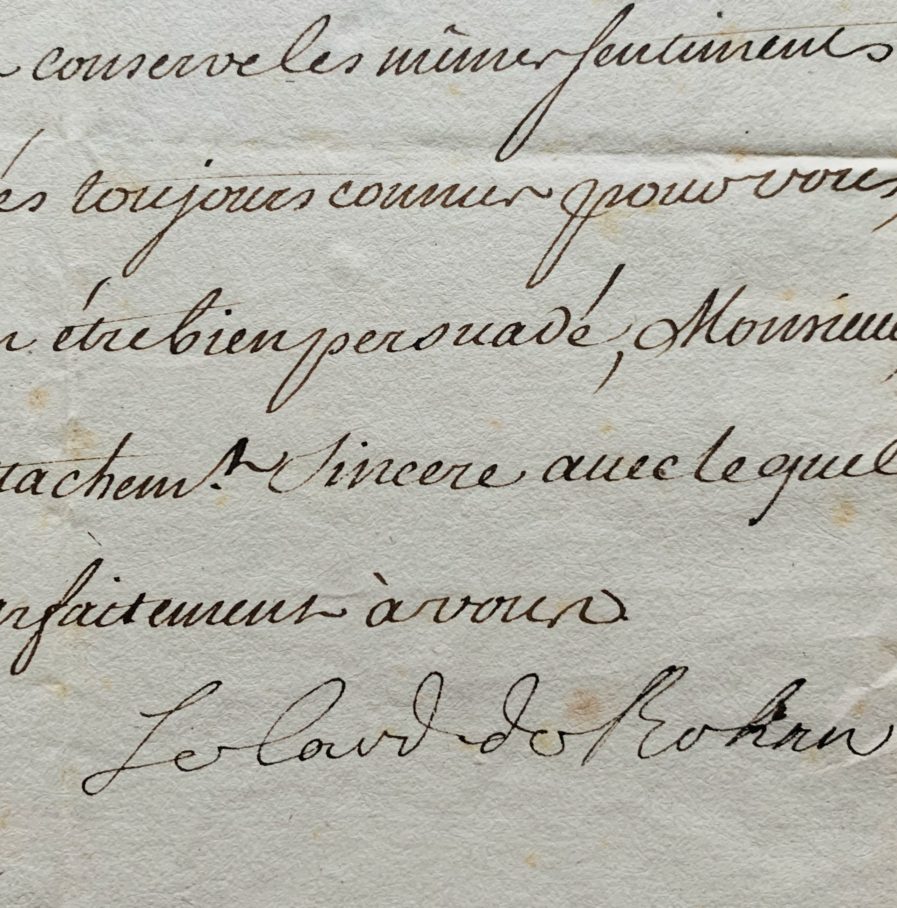 conserve les mêmes sentiments
és toujours connus pour vous,
être bien persuadé, Monsieur,
ttachemt. Sincere avec lequel
rfaitement à vous
Le Card de Rohan